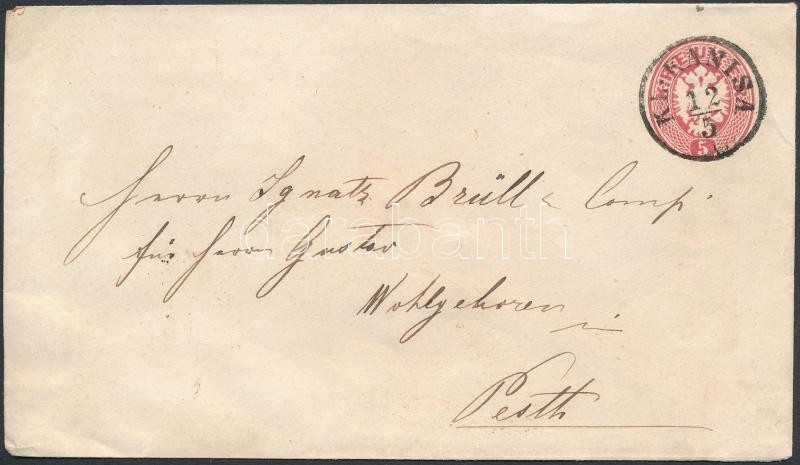 KREUZER
KL: KANISA
12
5
5
Herrn Ignatz Brüll & Comp.
für Herrn Gustav
Wohlgeboren
in
Pesth
darabanth